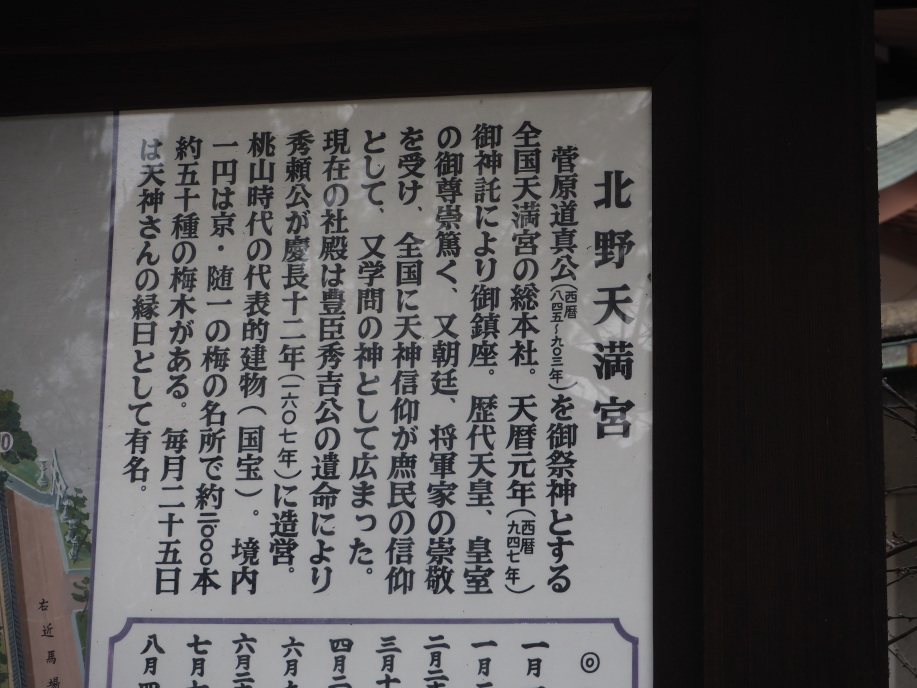 北野天満宮
菅原道真公(西暦八四五~九〇三年)を御祭神とする
全国天満宮の総本社。天暦元年(西暦九四七年)
御神託により御鎮座。歴代天皇、皇室
の御尊崇篤く、又朝廷、将軍家の崇敬
を受け、全国に天神信仰が庶民の信仰
として、又学問の神として広まった。
現在の社殿は豊臣秀吉公の遺命により
秀頼公が慶長十二年(一六〇七年)に造営。
桃山時代の代表的建物(国宝)。境内
一円は京・随一の梅の名所で約二〇〇〇本
約五十種の梅木がある。毎月二十五日
は天神さんの縁日として有名。
◎
一月
一月
二月二
三月十
四月二
六月
六月二
七月
八月
右近馬場